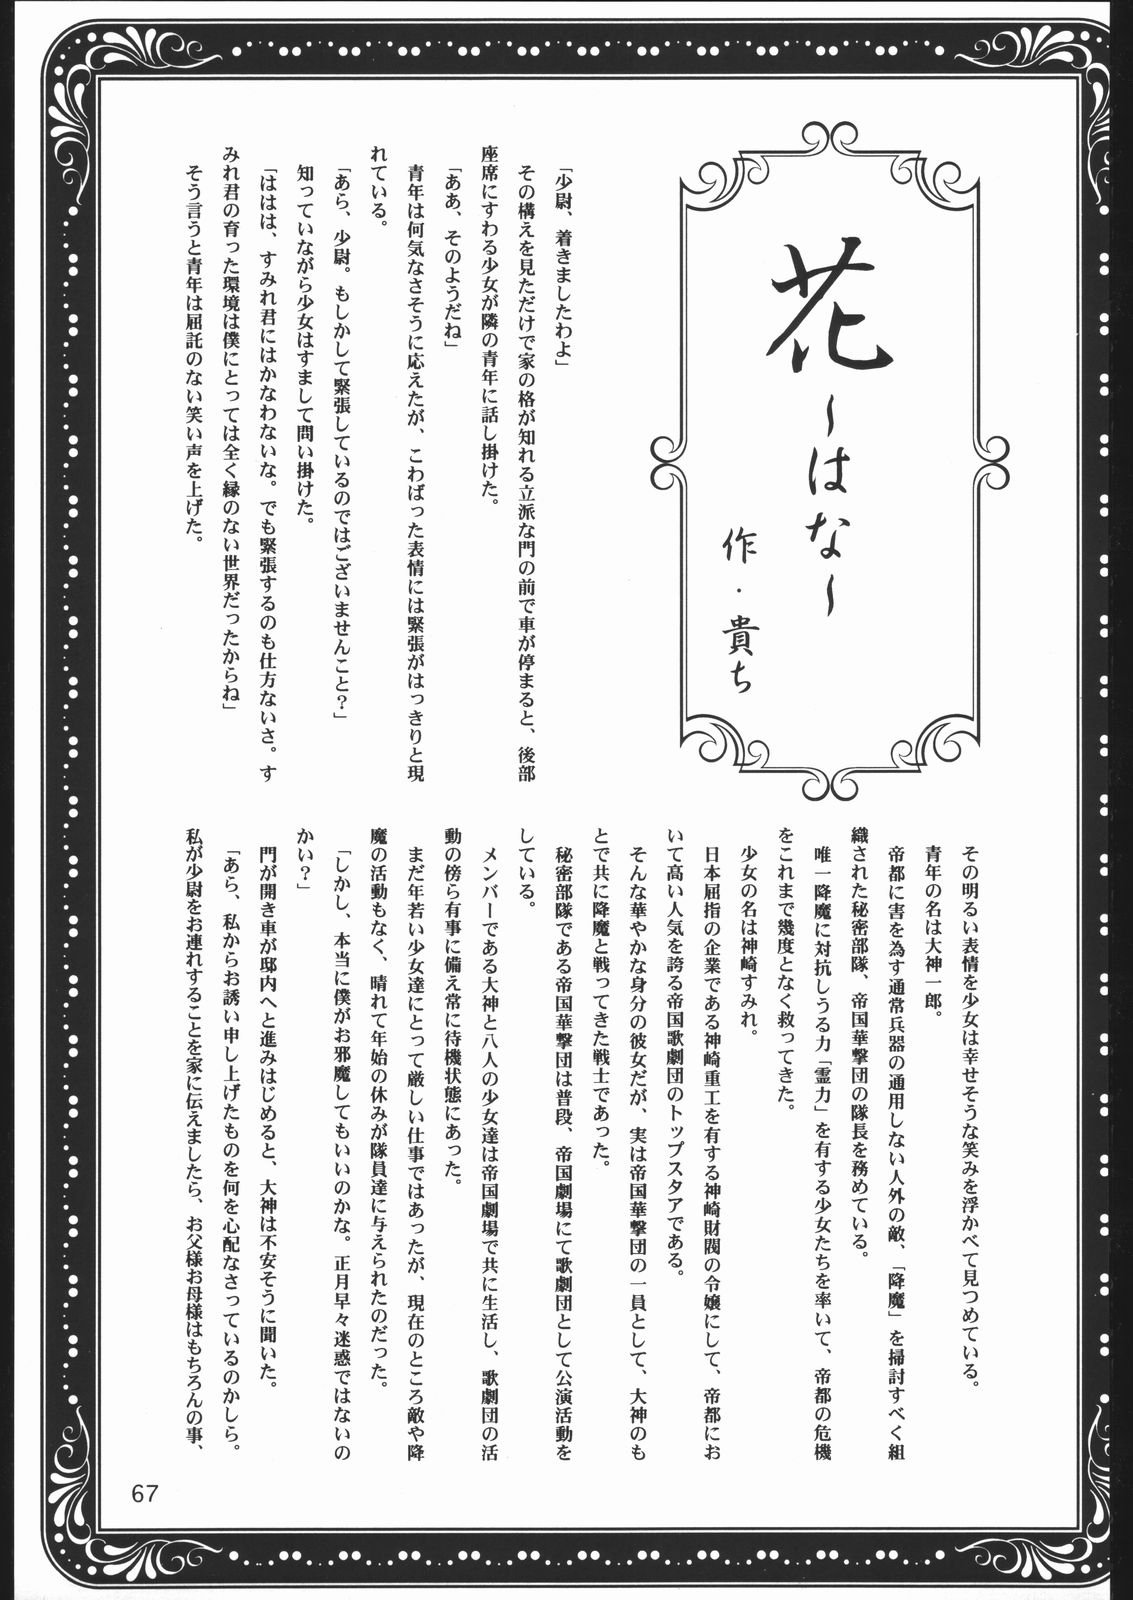 花
～はな～
作・貴ち
「少尉、着きましたわよ」
その構えを見ただけで家の格が知れる立派な門の前で車が停まると、後部
座席にすわる少女が隣の青年に話し掛けた。
「ああ、そのようだね」
青年は何気なさそうに応えたが、こわばった表情には緊張がはっきりと現
れている。
「あら、少尉。もしかして緊張しているのではございませんこと？」
知っていながら少女はすまして問い掛けた。
「ははは、すみれ君にはかなわないな。でも緊張するのも仕方ないさ。す
みれ君の育った環境は僕にとっては全く縁のない世界だったからね」
そう言うと青年は屈託のない笑い声を上げた。
その明るい表情を少女は幸せそうな笑みを浮かべて見つめている。
青年の名は大神一郎。
帝都に害を為す通常兵器の通用しない人外の敵、「降魔」を掃討すべく組
織された秘密部隊、帝国華撃団の隊長を務めている。
唯一降魔に対抗しうる力「霊力」を有する少女たちを率いて、帝都の危機
をこれまで幾度となく救ってきた。
少女の名は神崎すみれ。
日本屈指の企業である神崎重工を有する神崎財閥の令嬢にして、帝都にお
いて高い人気を誇る帝国歌劇団のトップスタアである。
そんな華やかな身分の彼女だが、実は帝国華撃団の一員として、大神のも
とで共に降魔と戦ってきた戦士であった。
秘密部隊である帝国華撃団は普段、帝国劇場にて歌劇団として公演活動を
している。
メンバーである大神と八人の少女達は帝国劇場で共に生活し、歌劇団の活
動の傍ら有事に備え常に待機状態にあった。
まだ年若い少女達にとって厳しい仕事ではあったが、現在のところ敵や降
魔の活動もなく、晴れて年始の休みが隊員達に与えられたのだった。
「しかし、本当に僕がお邪魔してもいいのかな。正月早々迷惑ではないの
かい？」
門が開き車が邸内へと進みはじめると、大神は不安そうに聞いた。
「あら、私からお誘い申し上げたものを何を心配なさっているのかしら。
私が少尉をお連れすることを家に伝えましたら、お父様お母様はもちろんの事、
67